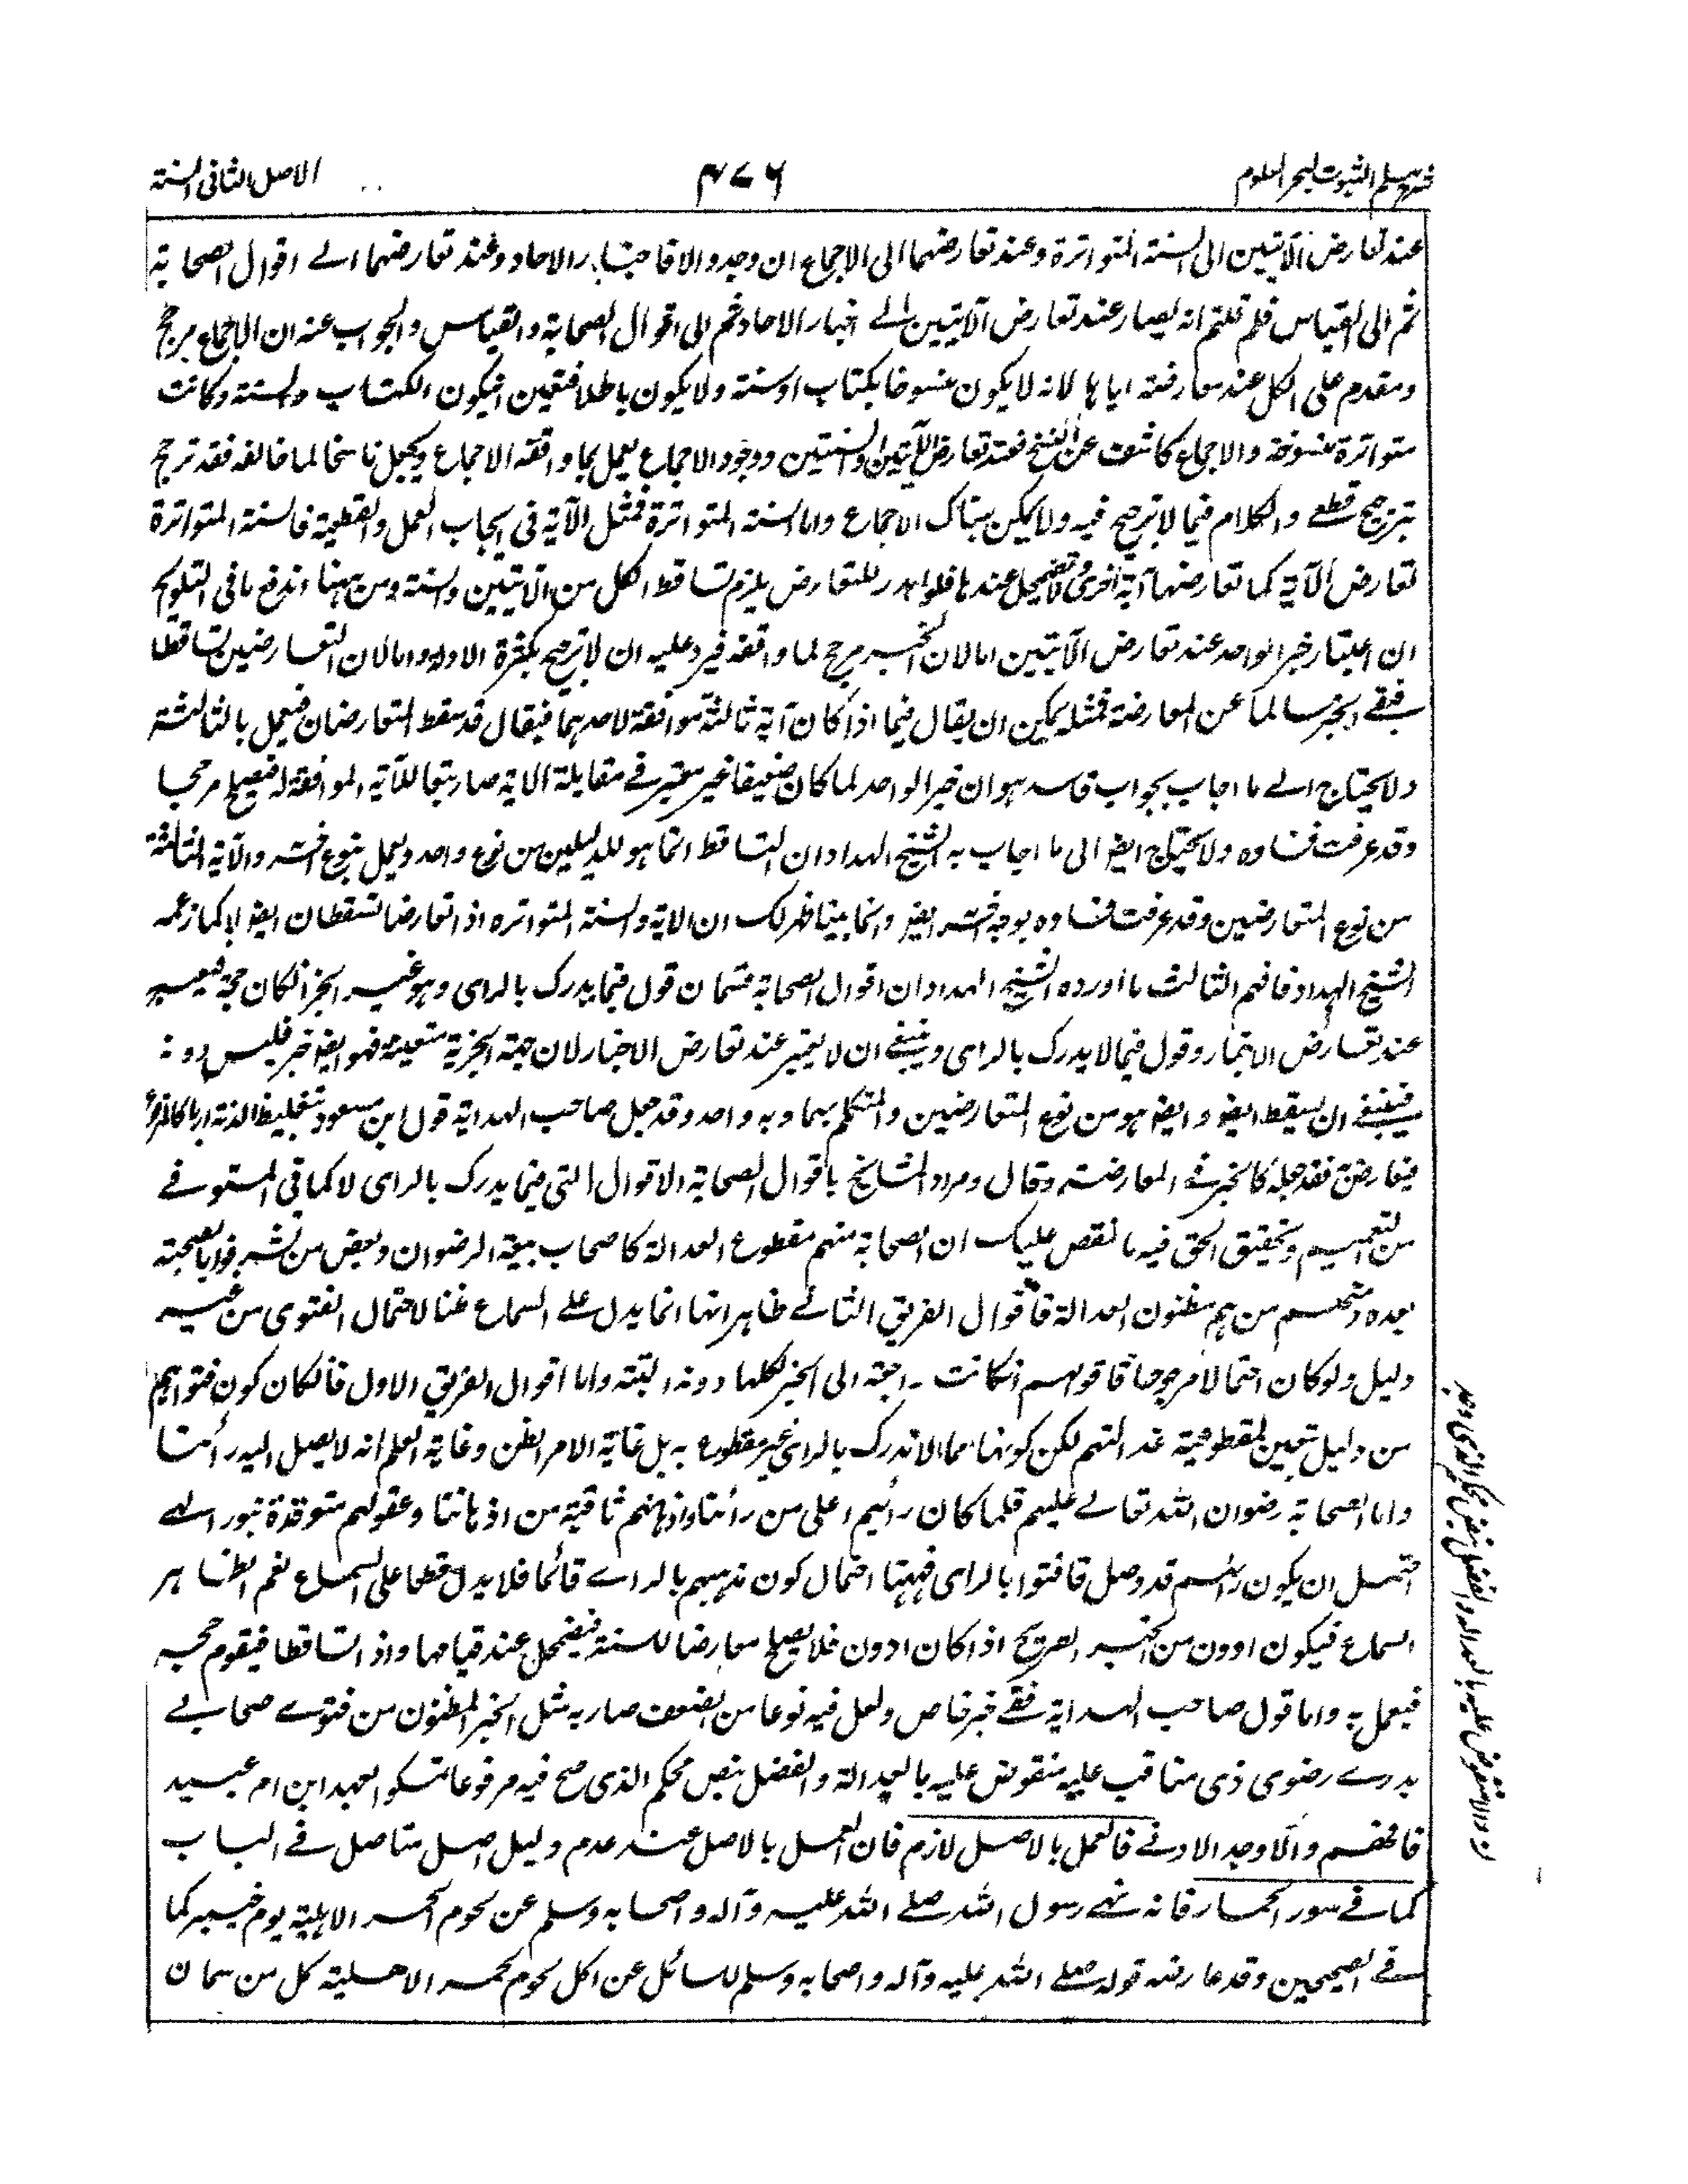 شرح مسلم الثبوت لبحر العلوم
۴۷۶
الاصل الثانی السنة
عند تعارض الآیتین الی السنة المتواترة وعند تعارضهما الی الاجماع ان وجد والا فاخبار الاحاد وعند تعارضهما الے اقوال الصحابة
ثم الی القیاس فلم قلتم انه یصار عند تعارض الآیتین الے اخبار الاحاد ثم الی اقوال الصحابة والقیاس والجواب عنه ان الاجماع مرجح
ومقدم علی الکل عند معارضته ایاها لانه لا یکون منسوخا بکتاب او سنة ولا یکون باطلا فتعین ان یکون الکتاب والسنة وکانت
متواترة منسوخة والاجماع کاشف عن النسخ فعند تعارض الآیتین والسنتین ووجود الاجماع یعمل بما وافقه الاجماع ویجعل ناسخا لما خالفه فقد ترجح
بترجیح قطعے والکلام فیما لا ترجیح فیه ولا یمکن هناک الاجماع واما السنة المتواترة فمثل الآیة فی ایجاب العمل والقطعیة فالسنة المتواترة
تعارض الآیة کما تعارضها آیة اخری ولا تضمحل عندها فلو اهدر للتعارض یلزم تساقط الکل من الآیتین والسنة ومن ههنا اندفع ما فی التلویح
ان اعتبار خبر الواحد عند تعارض الآیتین اما لان الخبر مرجح لما وافقه فیرد علیه ان لا ترجیح بکثرة الادلة واما لان المتعارضین تساقطا
فبقے الخبر سالما عن المعارضة فمثله یمکن ان یقال فیما اذا کان آیة ثالثة موافقة لاحدهما فیقال قد سقط المتعارضان فیعمل بالثالثة
ولا یحتاج الے ما اجاب بجواب فاسد هو ان خبر الواحد لما کان ضعیفا غیر معتبر فے مقابلة الایة صار تبعا للآیة الموافقة له فیصلح مرجحا
وقد عرفت فساده ولا یحتاج ایضا الی ما اجاب به الشیخ الهداد ان التساقط انما هو للدلیلین من نوع واحد ویعمل بنوع اخر والآیة الثالثة
من نوع المتعارضین وقد عرفت فساده بوجه اخر ایضا وانما بینا ظهر لک ان الایة والسنة المتواتره اذا تعارضا تسقطان ایضا لا کما زعمه
الشیخ الهداد فافهم الثالث ما اورده الشیخ الهداد ان اقوال الصحابة قسمان قول فیما یدرک بالرای وهو غیر الخبر ان کان حجة فیصیر
عند تعارض الاخبار وقول فیما لا یدرک بالرای وینبغے ان لا یعتبر عند تعارض الاخبار لان جهة الخبریة متعینة فهو ایضا خبر فلیس دو ؛
فینبغے ان یسقط ایضا وایضا هو من نوع المتعارضین والمتکلم بهما وبه واحد وقد جعل صاحب الهدایة قول ابن مسعود بتغلیظ الدیة ارباعا کالمرفوع
فیعارض فقد جعله کالخبر فے المعارضة وقال ومراد المشایخ باقوال الصحابة الاقوال التی فیما یدرک بالرای لا کما فی المستوفے
من التعمیم وتحقیق الحق فیه ما نقص علیک ان الصحابة منهم مقطوع العدالة کاصحاب بیعة الرضوان وبعض من تشرفوا بالصحبة
بعده ومنهم من هم مظنون العدالة فاقوال الفریق الثانے ظاهر انها انما یدل علے السماع ظنا لاحتمال الفتوی من غیر
دلیل ولو کان احتمالا مرجوحا فاقوالهم ان کانت راجعة الی الخبر لکنها دونه البتة واما اقوال الفریق الاول فان کان کون فتواهم
من دلیل تعین لمقطوعیة عدالتهم لکن کونها مما لا تدرک بالرای غیر مقطوع به بل غایة الامر الظن وغایة العلم انه لا یصل الیه رأینا
واما الصحابة رضوان الله تعالے علیهم فلما کان رأیهم اعلی من رأینا واذهانهم ثاقبة من اذهاننا وعقولهم متوقدة بنور الهے
احتمل ان یکون رأیهم قد وصل فافتوا بالرای فههنا احتمال کون مذهبهم بالراے قائما فلا یدل قطعا علی السماع نعم الظاهر
السماع فیکون ادون من الخبر الصریح اذا کان ادون فلا یصلح معارضا للسنة فیضمحل عند قیامها واذا تساقطا فیقوم حجة
فیعمل به واما قول صاحب الهدایة ففے خبر خاص ولعل فیه نوعا من الضعف صار به مثل الخبر المظنون من فتوے صحابے
بدرے رضوی ذی مناقب علیة منقوض علیه بالعدالة والفضل بنص محکم الذی صح فیه مرفوعا تمسکوا بعهد ابن ام عبد
فافهم والا وجد الادنے فالعمل بالاصل لازم فان العمل بالاصل عند عدم دلیل اصل متاصل فے الباب
کما فے سور الحمار فانه نهے رسول الله صلے الله علیه وآله واصحابه وسلم عن لحوم الحمر الاهلیة یوم خیبر کما
فے الصحیحین وقد عارضه قوله صلے الله علیه وآله واصحابه وسلم لسائل عن اکل لحوم الحمر الاهلیة کل من سمان